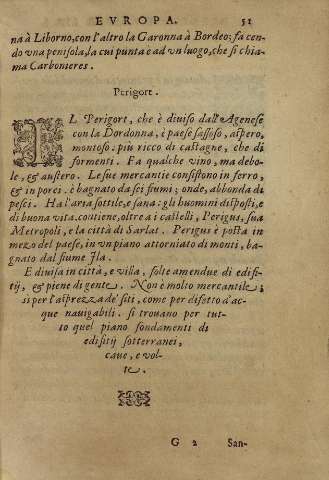 EVROPA. 51
na à Liborno, con l'altro la Garonna à Bordeo; fa cen
do vna penisola, la cui punta e ad vn luogo, che si chia
ma Carbonieres.
Perigort.
IL Perigort, che è diuiso dall'Agenese
con la Dordonna, è paese sassoso, aspero,
montoso: più ricco di castagne, che di
formenti. Fa qualche vino, ma debo-
le, & austero. Le sue mercatie consistono in ferro,
& in porci. è bagnato da sei fiumi; onde, abbonda di
pesci. Ha l'aria sottile, e sana: gli huomini disposti, e
di buona vita. contiene, oltre a i castelli, Perigus, sua
Metropoli, e la città di Sarlat. Perigus è posta in
mezo del paese, in vn piano attorniato di monti, ba-
gnato dal fiume Ila.
E diuisa in città, e villa, folte amendue di edifi-
tij, & piene di gente. Non è molto mercantile;
sì per l'asprezza de' siti, come per difetto d'ac-
que nauigabili. si trouano per tut-
to quel piano fondamenti di
edifitij sotterranei,
caue, e vol-
te.
G 2 San-